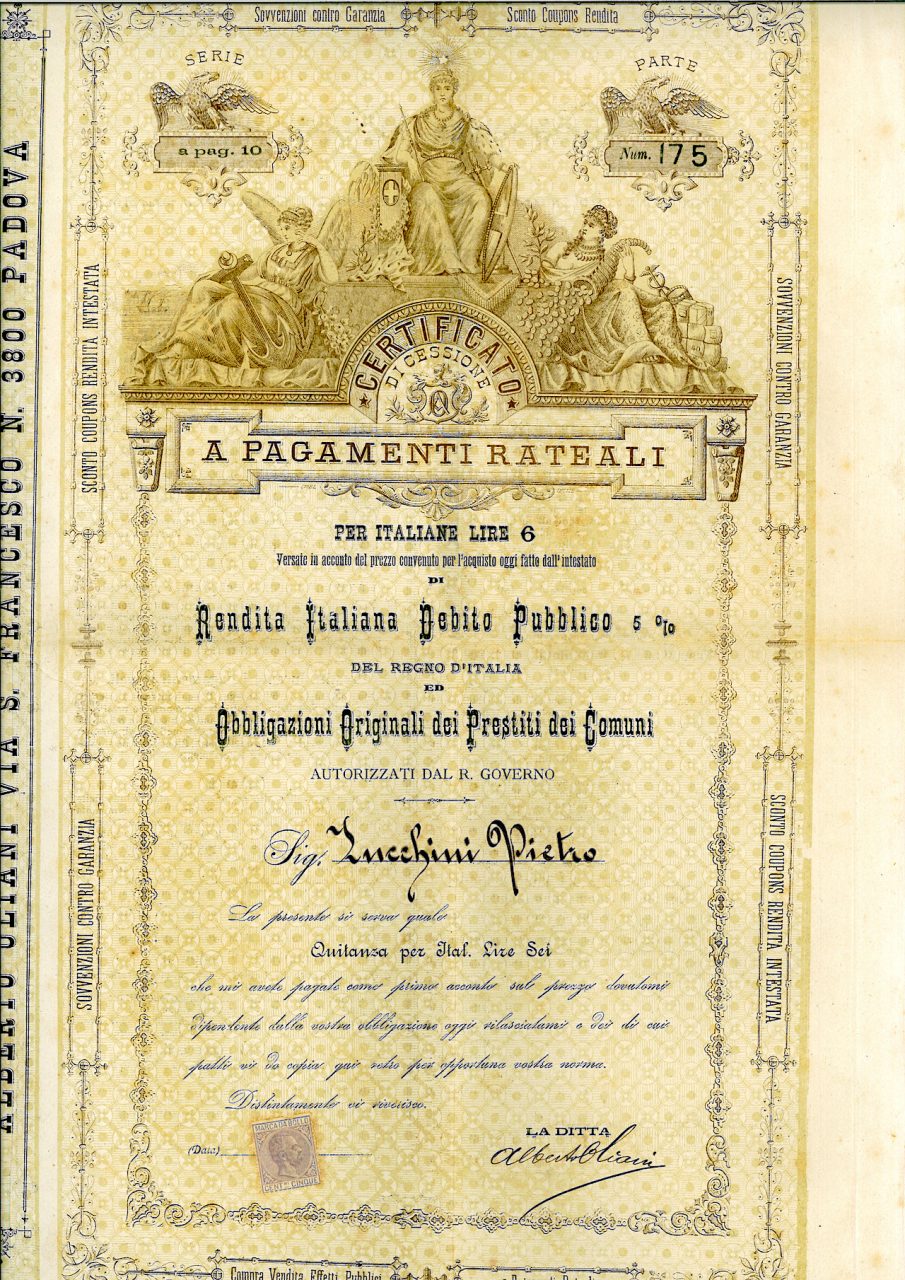 Sovvenzioni contro Garanzia
Sconto Coupons Rendita
SERIE
a pag. 10
PARTE
Num. 175
CERTIFICATO
DI CESSIONE
A PAGAMENTI RATEALI
PER ITALIANE LIRE 6
Versate in acconto del prezzo convenuto per l'acquisto oggi fatto dall'intestato
DI
Rendita Italiana Debito Pubblico 5 %
DEL REGNO D'ITALIA
ED
Obbligazioni Originali dei Prestiti dei Comuni
AUTORIZZATI DAL R. GOVERNO
Sig. Zucchini Pietro
La presente vi serva quale
Quitanza per Ital. Lire Sei
che mi avete pagate come primo acconto sul prezzo dovutomi
dipendente dalla vostra obbligazione oggi rilasciatami e dei di cui
patti vi do copia qui retro per opportuna vostra norma.
Distintamente vi riverisco.
(Data)
MARCA DA BOLLO
CENT.MI CINQUE
LA DITTA
Alberto Oliani
ALBERTO OLIANI VIA S. FRANCESCO N. 3800 PADOVA
SCONTO COUPONS RENDITA INTESTATA
SOVVENZIONI CONTRO GARANZIA
SOVVENZIONI CONTRO GARANZIA
SCONTO COUPONS RENDITA INTESTATA
Compra Vendita Effetti Pubblici